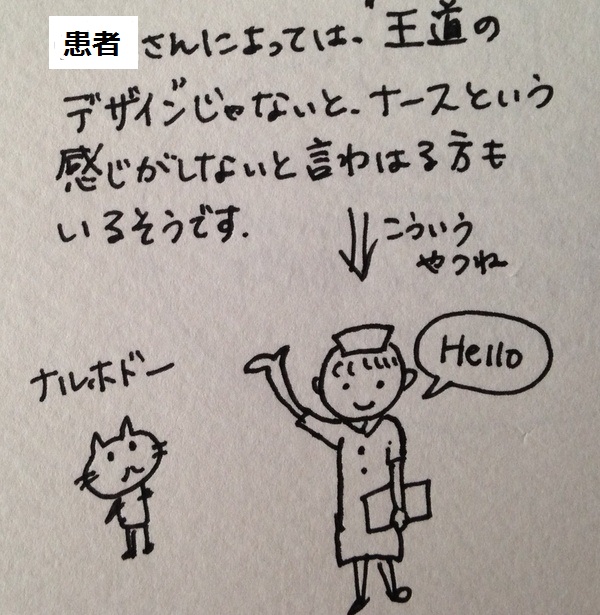 患者さんによっては、"王道の
デザインじゃないと、ナースという
感じがしないと言わはる方も
いるそうです.
こういう
やつね
ナルホドー
Hello